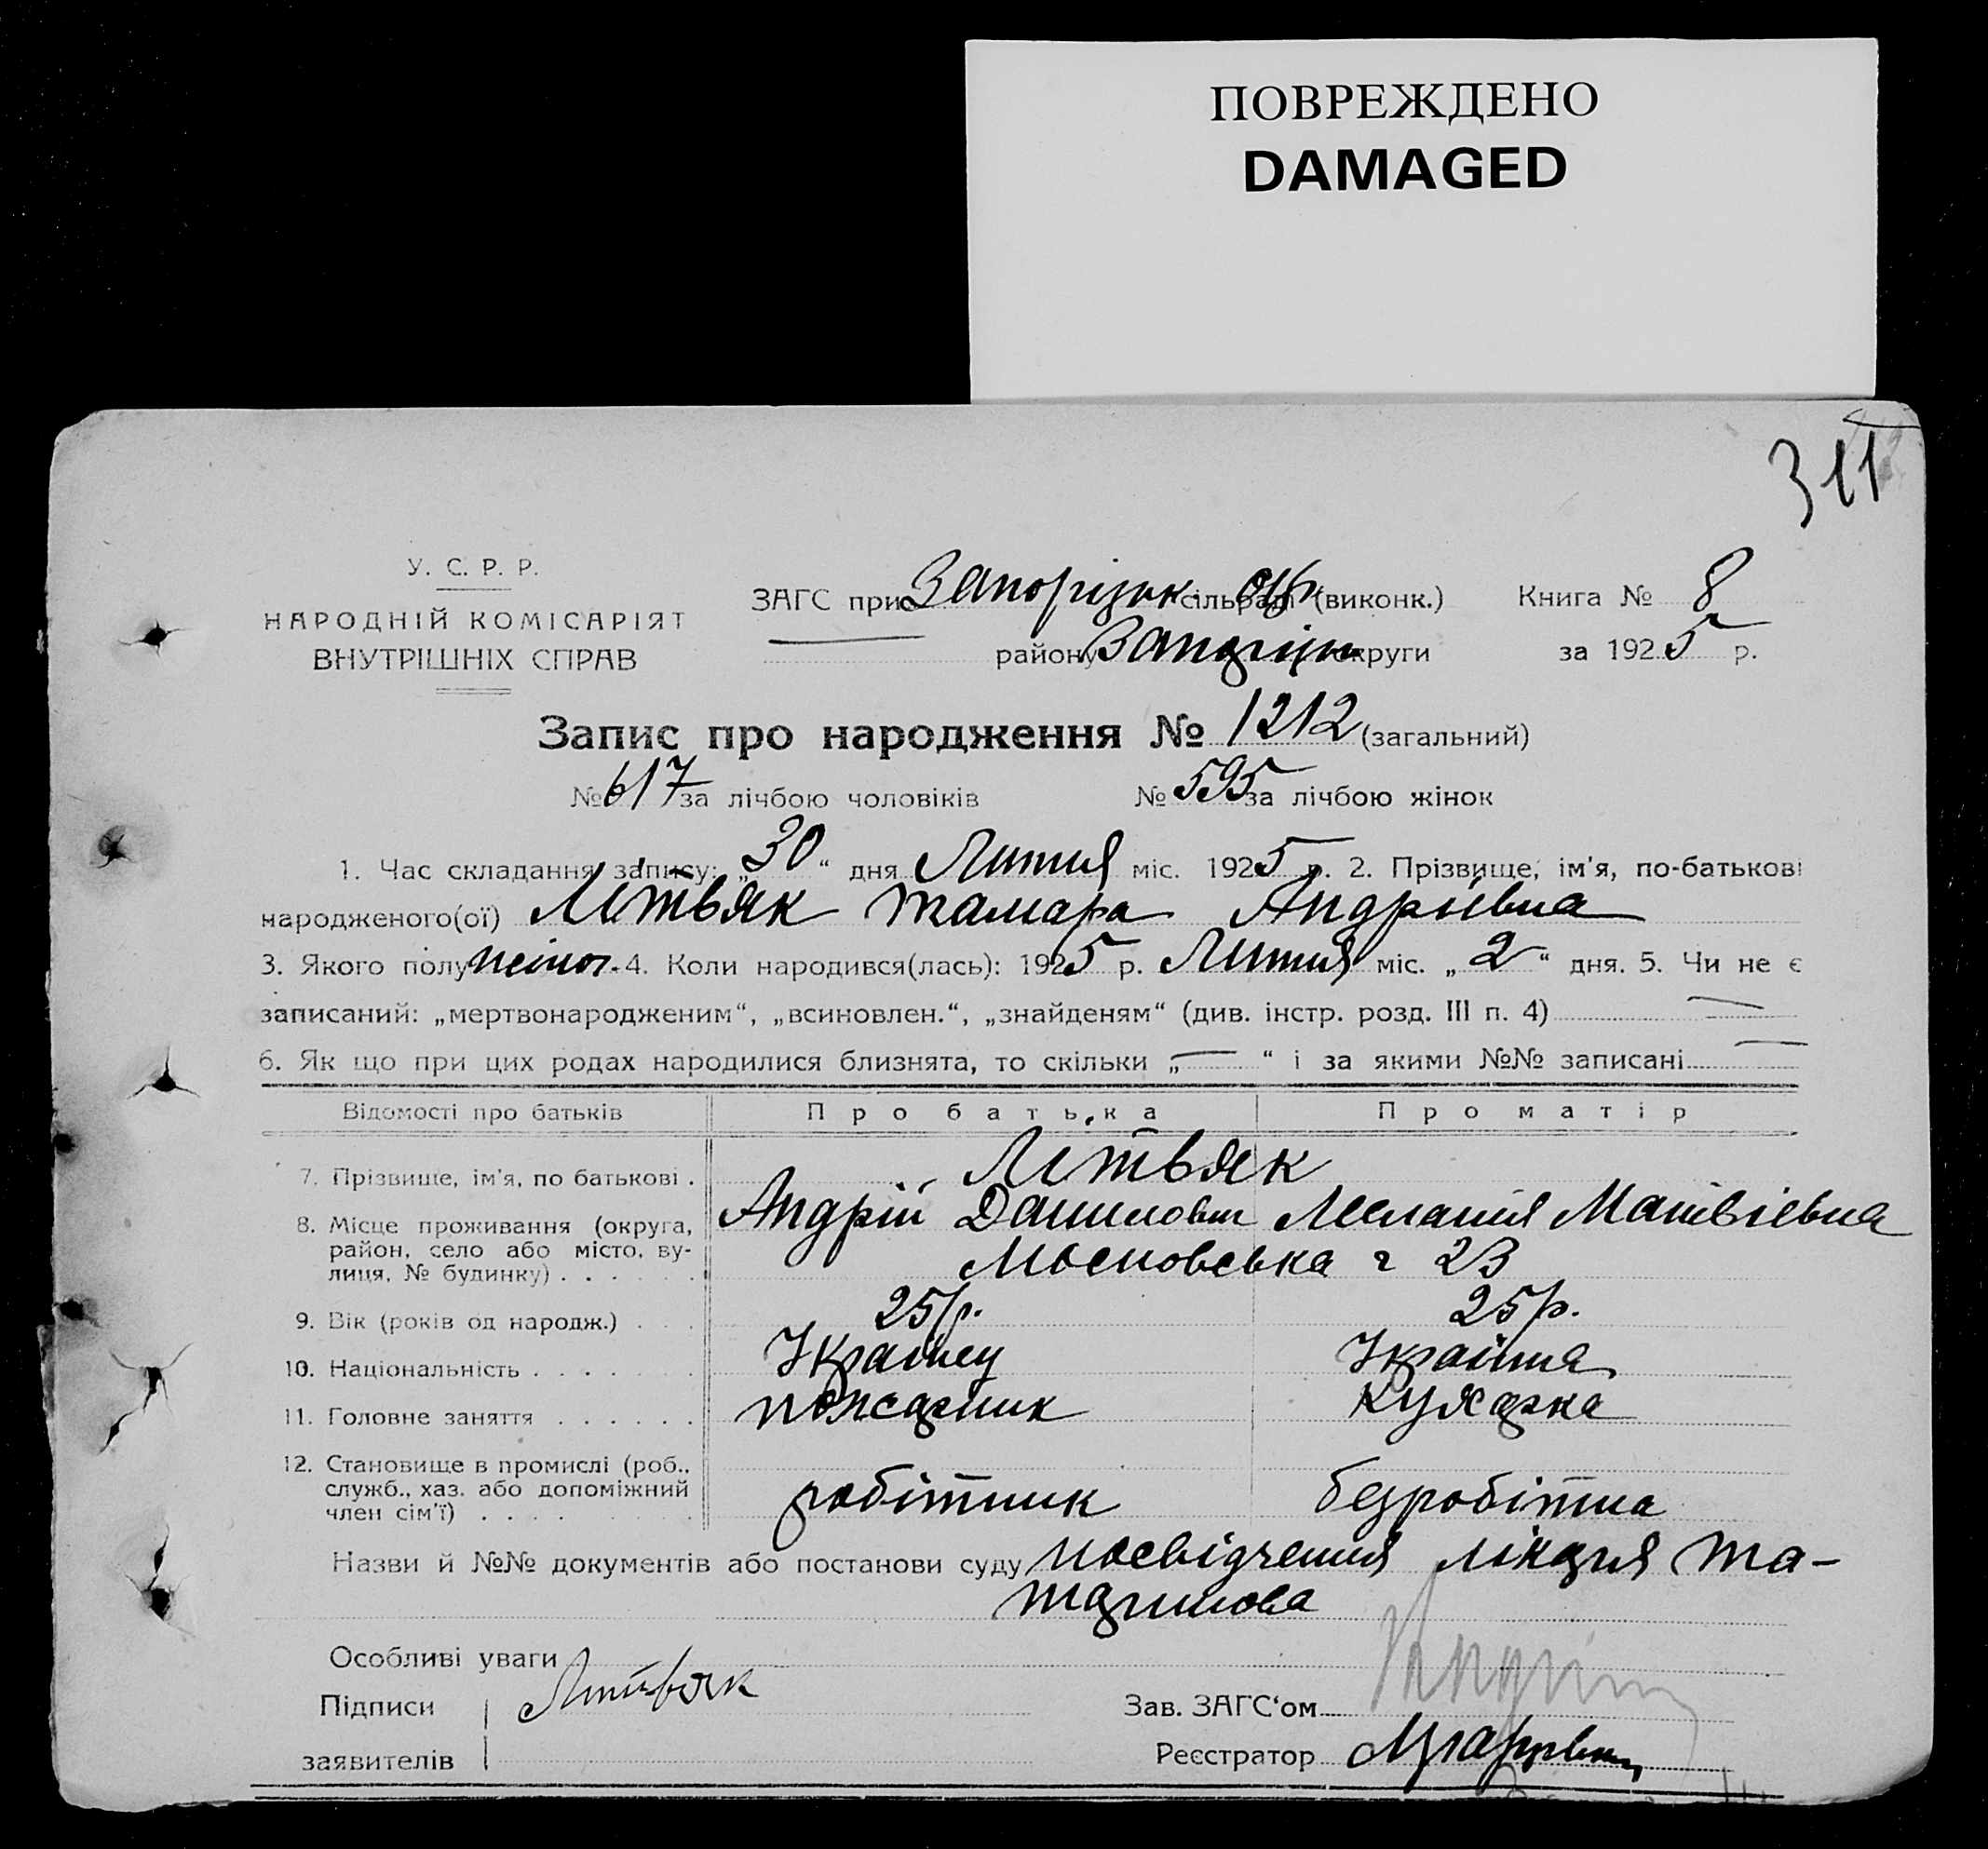 ПОВРЕЖДЕНО
DAMAGED
311
У. С. Р. Р.
НАРОДНІЙ КОМІСАРІЯТ
ВНУТРІШНІХ СПРАВ
ЗАГС при Запорізьк. окр. сільраді (виконк.) Книга № 8
району Запоріжж округи за 1925 р.
Запис про народження № 1212 (загальний)
№ 617 за лічбою чоловіків № 595 за лічбою жінок
1. Час складання запису: „30“ дня Липня міс. 1925 р. 2. Прізвище, ім'я, по-батькові
народженого(ої) Літвяк Тамара Андріївна
3. Якого полу жіноч. 4. Коли народився(лась): 1925 р. Липня міс. „2“ дня. 5. Чи не є
записаний: „мертвонародженим“, „всиновлен.“, „знайденям“ (див. інстр. розд. III п. 4) —
6. Як що при цих родах народилися близнята, то скільки „—“ і за якими №№ записані —
Відомості про батьків Про батька Про матір
7. Прізвище, ім'я, по батькові . Літвяк
Андрій Данилович Меланія Матвієвна
8. Місце проживання (округа,
район, село або місто, вулиця, № будинку) . . . . . . Московська ч 23
9. Вік (років од народж.) . . . 25 р. 25 р.
10. Національність . . . . . . . Українец Українка
11. Головне заняття . . . . . . пожарник Кухарка
12. Становище в промислі (роб.,
служб., хаз. або допоміжний
член сім'ї) . . . . робітник безробітна
Назви й №№ документів або постанови суду посвідчення лікаря Та-
таринова
Особливі уваги
Підписи Литвяк Зав. ЗАГС'ом
заявителів Реєстратор